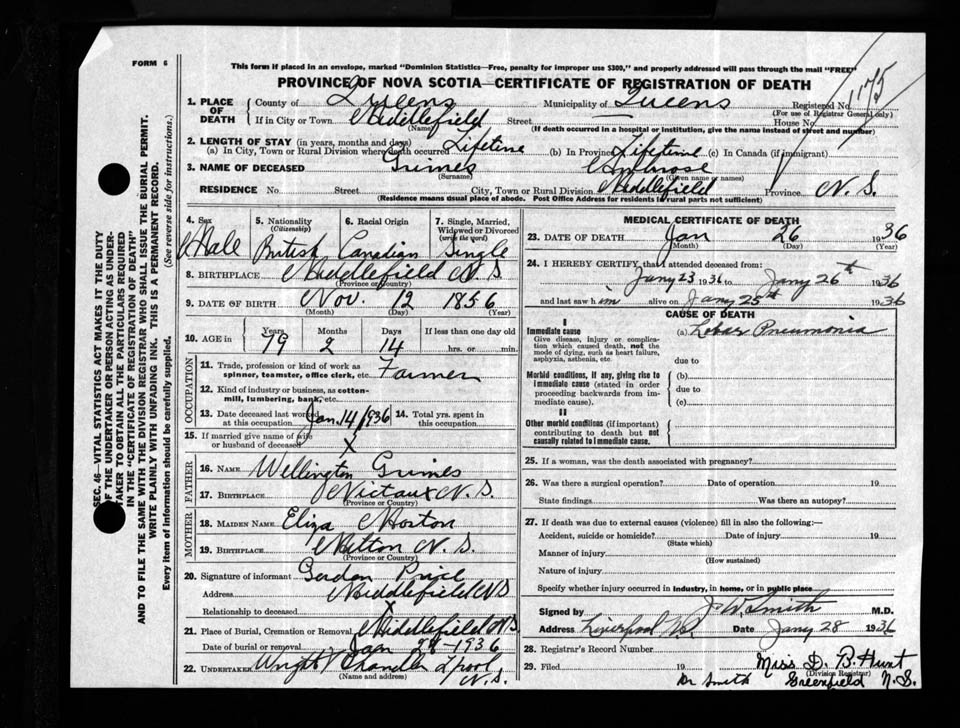 FORM 6
This form if placed in an envelope, marked "Dominion Statistics—Free, penalty for improper use $300," and properly addressed will pass through the mail "FREE"
PROVINCE OF NOVA SCOTIA—CERTIFICATE OF REGISTRATION OF DEATH
1175
1. PLACE OF DEATH County of Queens Municipality of Queens Registered No.
(For use of Registrar General only)
If in City or Town Middlefield Street House No.
(Name) (If death occurred in a hospital or institution, give the name instead of street and number)
2. LENGTH OF STAY (in years, months and days)
(a) In City, Town or Rural Division where death occurred Lifetime (b) In Province Lifetime (c) In Canada (if immigrant)
3. NAME OF DECEASED Grimes Ambrose
(Surname) (Given name or names)
RESIDENCE No. Street City, Town or Rural Division Middlefield Province N.S.
(Residence means usual place of abode. Post Office Address for residents in rural parts not sufficient)
4. Sex 5. Nationality 6. Racial Origin 7. Single, Married, Widowed or Divorced
(Citizenship) (write the word)
Male British Canadian Single
8. BIRTHPLACE Middlefield N.S.
(Province or Country)
9. DATE OF BIRTH Nov. 12 1856
(Month) (Day) (Year)
10. AGE in Years Months Days If less than one day old
79 2 14 hrs. or min.
OCCUPATION
11. Trade, profession or kind of work as spinner, teamster, office clerk, etc. Farmer
12. Kind of industry or business, as cotton-mill, lumbering, bank, etc.
13. Date deceased last worked at this occupation Jan. 14 1936 14. Total yrs. spent in this occupation
15. If married give name of wife or husband of deceased X
FATHER
16. NAME Wellington Grimes
17. BIRTHPLACE Nictaux N.S.
(Province or Country)
MOTHER
18. MAIDEN NAME Eliza Morton
19. BIRTHPLACE Milton N.S.
(Province or Country)
20. Signature of informant Gordon
Address Middlefield N.S
Relationship to deceased X
21. Place of Burial, Cremation or Removal Middlefield N.S
Date of burial or removal Jan 1936
22. UNDERTAKER Wright Chandler L'pool
(Name and address) N.S.
MEDICAL CERTIFICATE OF DEATH
23. DATE OF DEATH Jan 26 1936
(Month) (Day) (Year)
24. I HEREBY CERTIFY that I attended deceased from:
Jany 23 1936 to Jany 26th 1936
and last saw him alive on Jany 25th 1936
CAUSE OF DEATH
I
Immediate cause (a) Lobar Pneumonia
Give disease, injury or complication which caused death, not the mode of dying, such as heart failure, asphyxia, asthenia, etc.
due to
Morbid conditions, if any, giving rise to immediate cause (stated in order proceeding backwards from immediate cause).
(b)
due to
(c)
II
Other morbid conditions (if important) contributing to death but not causally related to immediate cause.
25. If a woman, was the death associated with pregnancy?
26. Was there a surgical operation? Date of operation 19
State findings Was there an autopsy?
27. If death was due to external causes (violence) fill in also the following:—
Accident, suicide or homicide? Date of injury 19
(State which)
Manner of injury
(How sustained)
Nature of injury
Specify whether injury occurred in industry, in home, or in public place
Signed by J W Smith M.D.
Address Liverpool N.S. Date Jany 28 1936
28. Registrar's Record Number
29. Filed 19 Miss D. B. Hunt
(Division Registrar)
Dr Smith Greenfield N.S.
SEC. 46—VITAL STATISTICS ACT MAKES IT THE DUTY
OF THE UNDERTAKER OR PERSON ACTING AS UNDER-
TAKER TO OBTAIN ALL THE PARTICULARS REQUIRED
IN THE "CERTIFICATE OF REGISTRATION OF DEATH"
AND TO FILE THE SAME WITH THE DIVISION REGISTRAR WHO SHALL ISSUE THE BURIAL PERMIT.
WRITE PLAINLY WITH UNFADING INK. THIS IS A PERMANENT RECORD.
Every item of information should be carefully supplied. (See reverse side for instructions.)